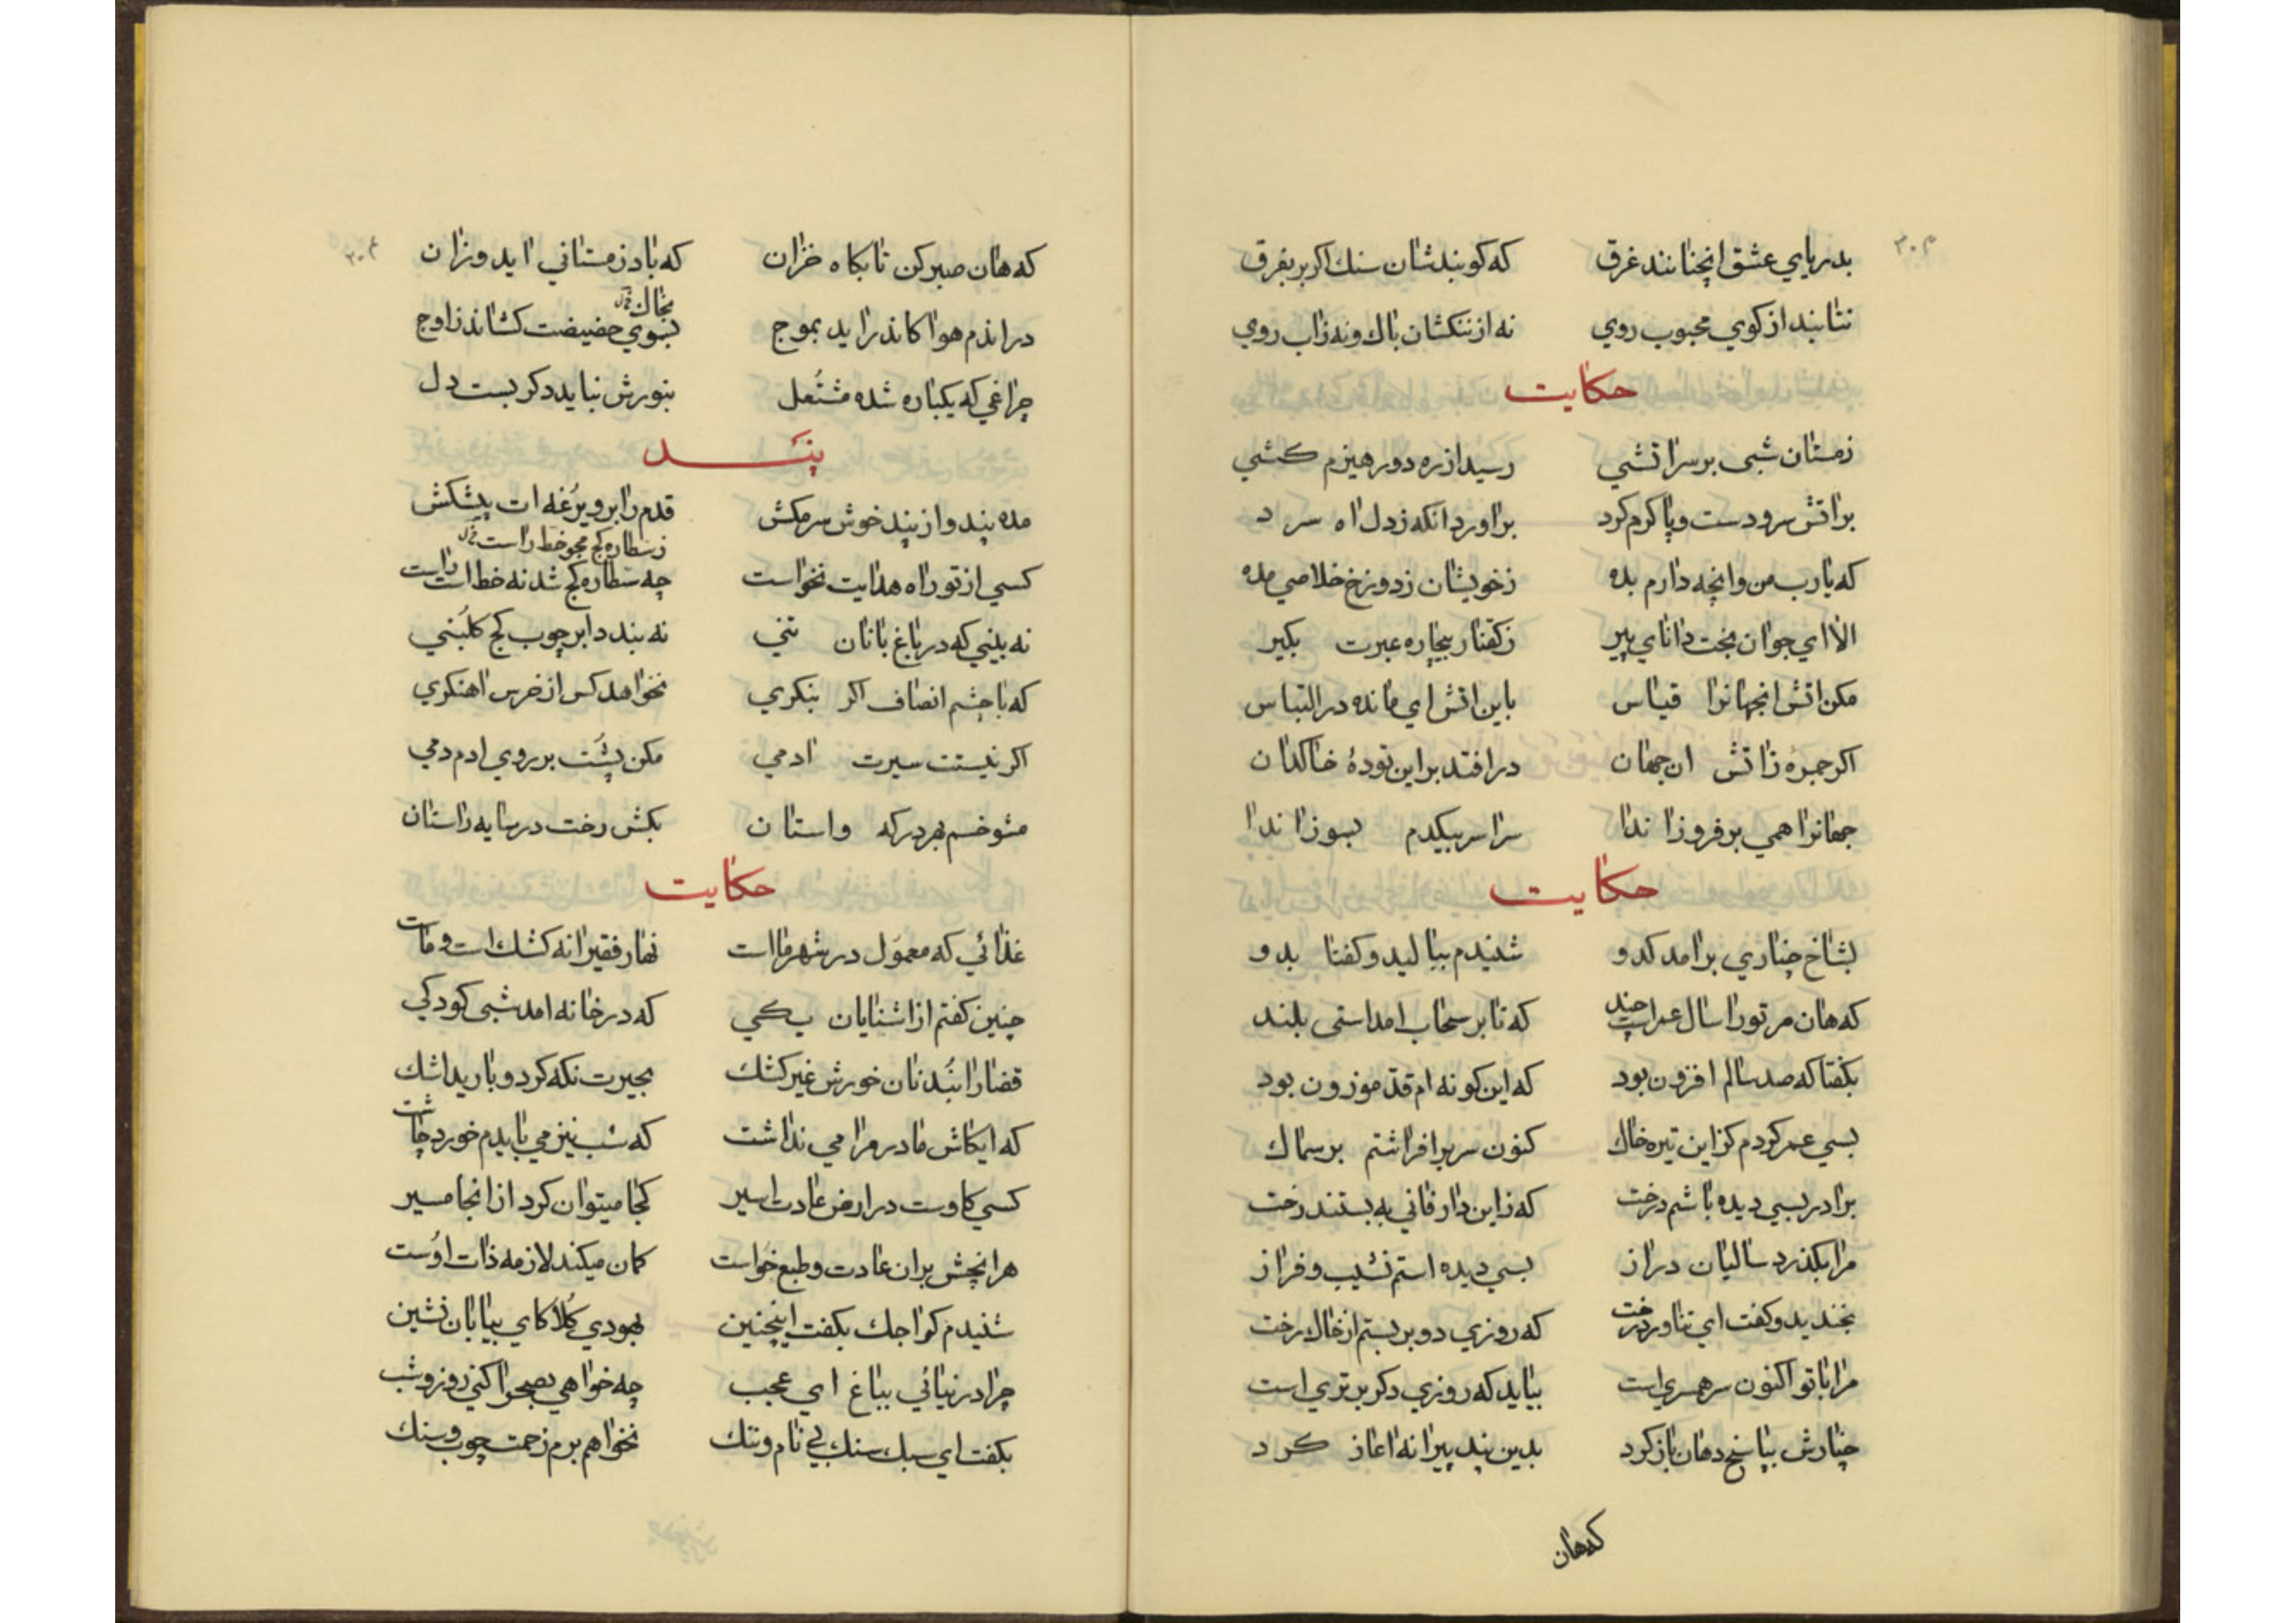 بدریای عشق انچنانند غرق که کوبندشان سنك اکر بر بفرق
نتابند از کوی محبوب روی نه از ننکشان باك و نه زاب روی
حکایت
زمستان شبی بر سر اتشی رسید از ره دور هیزم کشی
بر اتش سر و دست و پا کرم کرد براورد انکه ز دل اه سرد
که یارب من وانچه دارم بده زخویشان ز دوزخ خلاصی مده
الا ای جوان بخت دانای پیر ز کفتار بیچاره عبرت بکیر
مکن اتش انجهانرا قیاس باین اتش ای مانده در التباس
اکر جمرۀ ز اتش ان جهان در افتد بر این تودۀ خاکدان
جهانرا همی بر فروزاندا سراسر بیکدم بسوزاندا
حکایت
بشاخ چناری برامد کدو شنیدم ببالید و کفتا بدو
که هان مر تورا سال عمر است چند که تا بر سحاب امداستی بلند
بکفتا که صد سالم افزون بود که این کونه ام قد موزون بود
بسی عمر کردم کز این تیره خاك کنون سر بر افراشتم بر سماك
برادر بسی دیده باشم درخت که زاین دار فانی به بستند رخت
مرا بکذرد سالیان دراز بسی دیده استم نشیب و فراز
بخندید و کفت ای تناور درخت که روزی دو بر بستم از خاك رخت
مرا با تو اکنون سر همسری است بیاید که روزی دکر برتری است
چنارش بپاسخ دهان باز کرد بدین پند پیرانه اغاز کرد
که هان
که هان صبر کن تا بکاه خزان که باد زمستانی اید وزان
بخاك
در اندم هوا کاندراید بموج بسوی حضیضت کشاند ز اوج
چراغی که یکباره شد مشتعل بنورش نباید دکر بست دل
پند
مده پند و از پند خوش سر مکش قدم را برو یرغه ات پیشکش
ز سطاره کج مجو خط راست
کسی از تو راه هدایت نخواست چه سطاره کج شد نه خط است راست
نه بینی که در باغ بانان تنی نه بندد ابر چوب کج کلبنی
که با چشم انصاف اکر بنکری نخواهد کس از خرس اهنکری
اکر نیستت سیرت ادمی مکن پشت بر روی ادم دمی
مشو خسم بهر درکه واستان بکش رخت در سایه راستان
حکایت
غذائی که معمول در شهر ما است نهار فقیرانه کشك است و مات
چنین کفتم از اشنایان یکی که در خانه امد شبی کودکی
قضارا نبد نان خورش غیر کشك بحیرت نکه کرد و بارید اشك
که ایکاش مادر مرا می نداشت که شب نیز می بایدم خورد چاشت
کسی کاوست در ارض عادت اسیر کجا میتوان کرد از انجا مسیر
هر انچش بران عادت و طبع خواست کمان میکند لازمه ذات اوست
شنیدم کواجك بکفت اینچنین بهودی کلا کای بیابان نشین
چرا در نیائی بباغ ای عجب چه خواهی بصحرا کنی روز و شب
بکفت ای سبك سنك بی نام و ننك نخواهم برم زحمت چوب و سنك